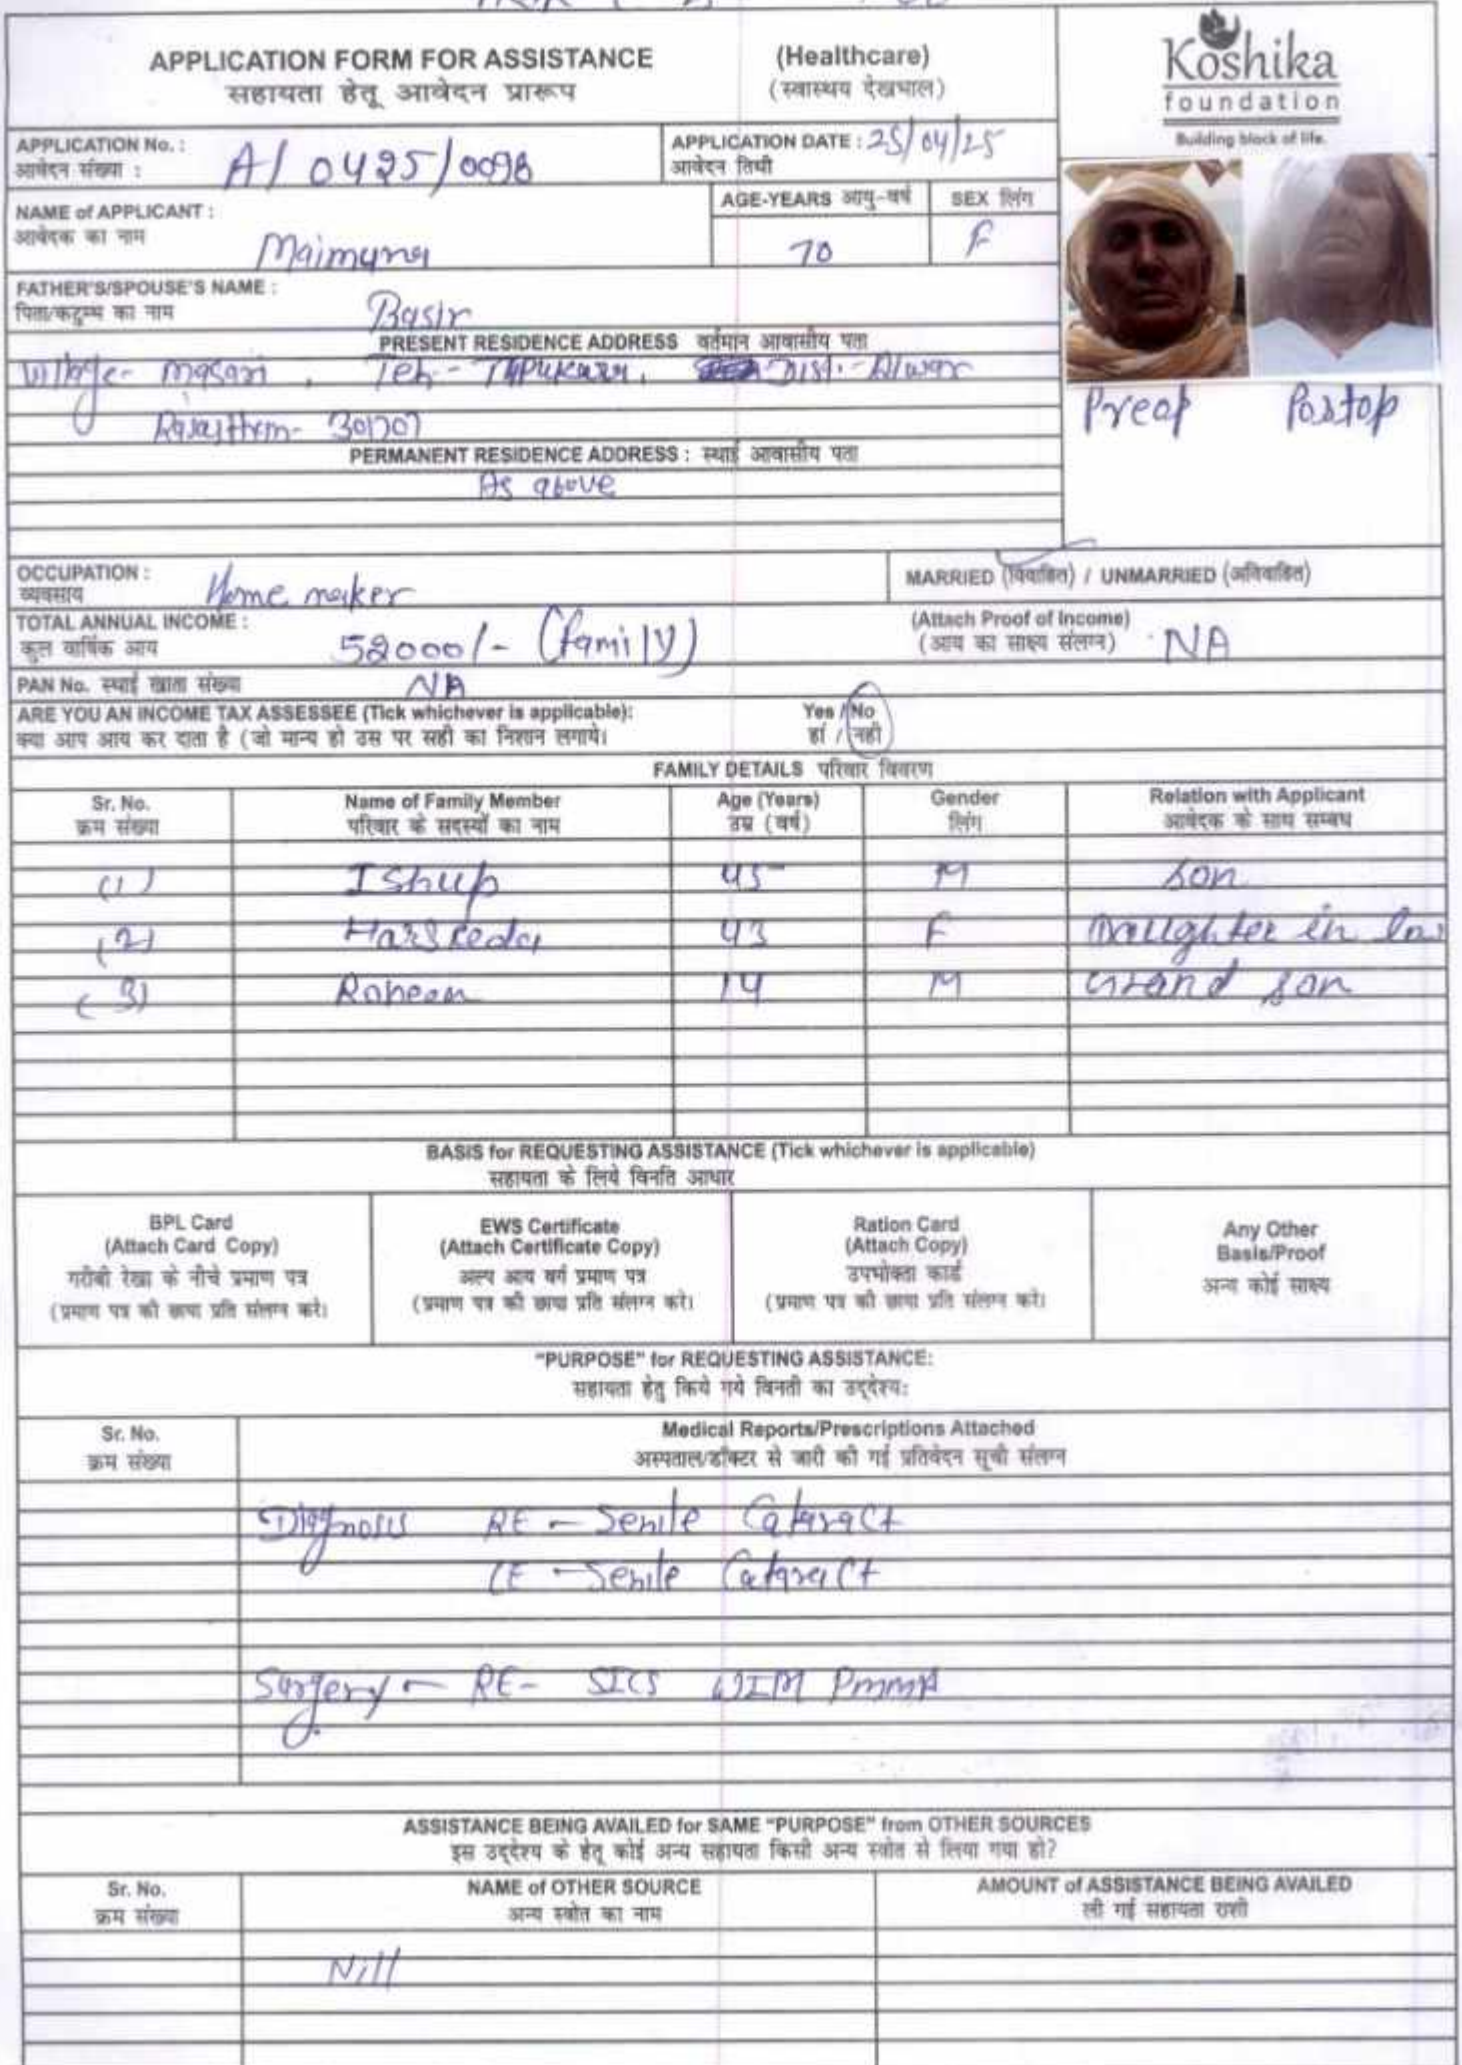 APPLICATION FORM FOR ASSISTANCE
सहायता हेतू आवेदन प्रारूप
(Healthcare)
(स्वास्थय देखभाल)
Koshika
foundation
Building block of life.
APPLICATION No. :
आवेदन संख्या :
A/0425/0098
APPLICATION DATE : 25/04/25
आवेदन तिथी
NAME of APPLICANT :
आवेदक का नाम
Maimuna
AGE-YEARS आयु-वर्ष
70
SEX लिंग
F
FATHER'S/SPOUSE'S NAME :
पिता/कटुम्ब का नाम
Basir
PRESENT RESIDENCE ADDRESS वर्तमान आवासीय पता
Village- Masari, Teh- Tapukara, Dist.- Alwar
Rajasthan- 301707
PERMANENT RESIDENCE ADDRESS : स्थाई आवासीय पता
As above
Preop Postop
OCCUPATION :
व्यवसाय
Home maker
MARRIED (विवाहित) / UNMARRIED (अविवाहित)
TOTAL ANNUAL INCOME :
कुल वार्षिक आय
52000/- (family)
(Attach Proof of Income)
(आय का साक्ष्य संलग्न) NA
PAN No. स्थाई खाता संख्या NA
ARE YOU AN INCOME TAX ASSESSEE (Tick whichever is applicable):
क्या आप आय कर दाता है (जो मान्य हो उस पर सही का निशान लगाये।
Yes / No
हां / नही
FAMILY DETAILS परिवार विवरण
Sr. No. Name of Family Member Age (Years) Gender Relation with Applicant
क्रम संख्या परिवार के सदस्यों का नाम उम्र (वर्ष) लिंग आवेदक के साथ सम्बध
(1) Ishup 45 M Son
(2) 43 F Daughter in law
(3) 14 M Grand son
BASIS for REQUESTING ASSISTANCE (Tick whichever is applicable)
सहायता के लिये विनति आधार
BPL Card
(Attach Card Copy)
गरीबी रेखा के नीचे प्रमाण पत्र
(प्रमाण पत्र की छाया प्रति संलग्न करे।
EWS Certificate
(Attach Certificate Copy)
अल्प आय वर्ग प्रमाण पत्र
(प्रमाण पत्र की छाया प्रति संलग्न करे।
Ration Card
(Attach Copy)
उपभोक्ता कार्ड
(प्रमाण पत्र की छाया प्रति संलग्न करे।
Any Other
Basis/Proof
अन्य कोई साक्ष्य
"PURPOSE" for REQUESTING ASSISTANCE:
सहायता हेतु किये गये विनती का उद्देश्य:
Sr. No.
क्रम संख्या
Medical Reports/Prescriptions Attached
अस्पताल/डॉक्टर से जारी की गई प्रतिवेदन सूची संलग्न
Diagnosis RE - Senile Cataract
LE - Senile Cataract
Surgery - RE- SICS WIM PMMA
ASSISTANCE BEING AVAILED for SAME "PURPOSE" from OTHER SOURCES
इस उद्देश्य के हेतू कोई अन्य सहायता किसी अन्य स्त्रोत से लिया गया हो?
Sr. No. NAME of OTHER SOURCE AMOUNT of ASSISTANCE BEING AVAILED
क्रम संख्या अन्य स्त्रोत का नाम ली गई सहायता राशी
Nill